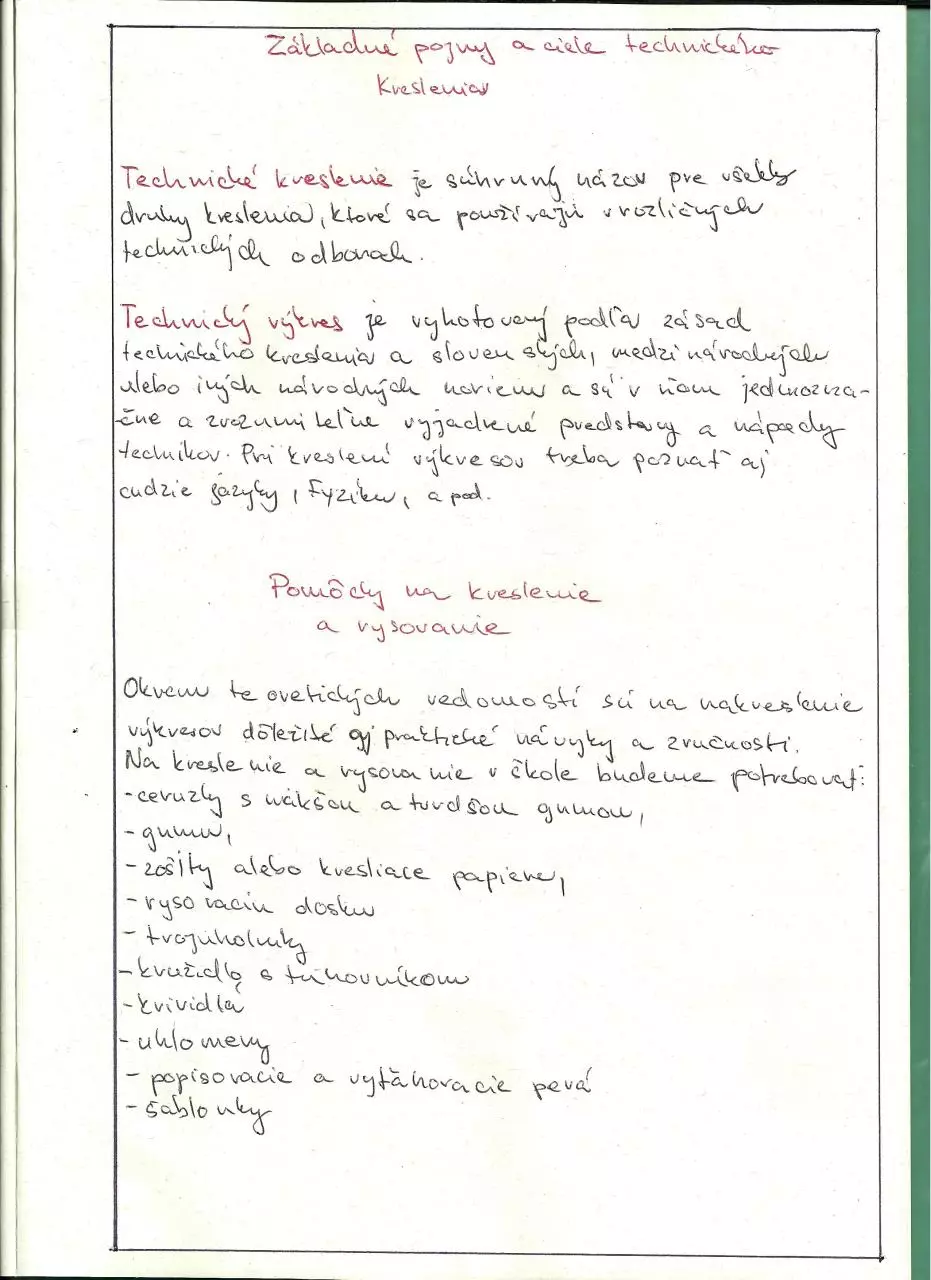 Základné pojmy a ciele technického
kreslenia
Technické kreslenie je súhrnný názov pre všetky
druhy kreslenia, ktoré sa používajú v rozličných
technických odboroch.
Technický výkres je vyhotovený podľa zásad
technického kreslenia a slovenských, medzinárodných
alebo iných národných noriem a sú v ňom jednozna-
čne a zrozumiteľne vyjadrené predstavy a nápady
technikov. Pri kreslení výkresov treba poznať aj
cudzie jazyky, fyziku, a pod.
Pomôcky na kreslenie
a rysovanie
Okrem teoretických vedomostí sú na nakreslenie
výkresov dôležité aj praktické návyky a zručnosti.
Na kreslenie a rysovanie v škole budeme potrebovať:
- ceruzky s mäkšou a tvrdšou gumou,
- gumu,
- zošity alebo kresliace papiere,
- rysovaciu dosku
- trojuholníky
- kružidlo s tuhovníkom
- krividlá
- uhlomery
- popisovacie a vyťahovacie perá
- šablonky